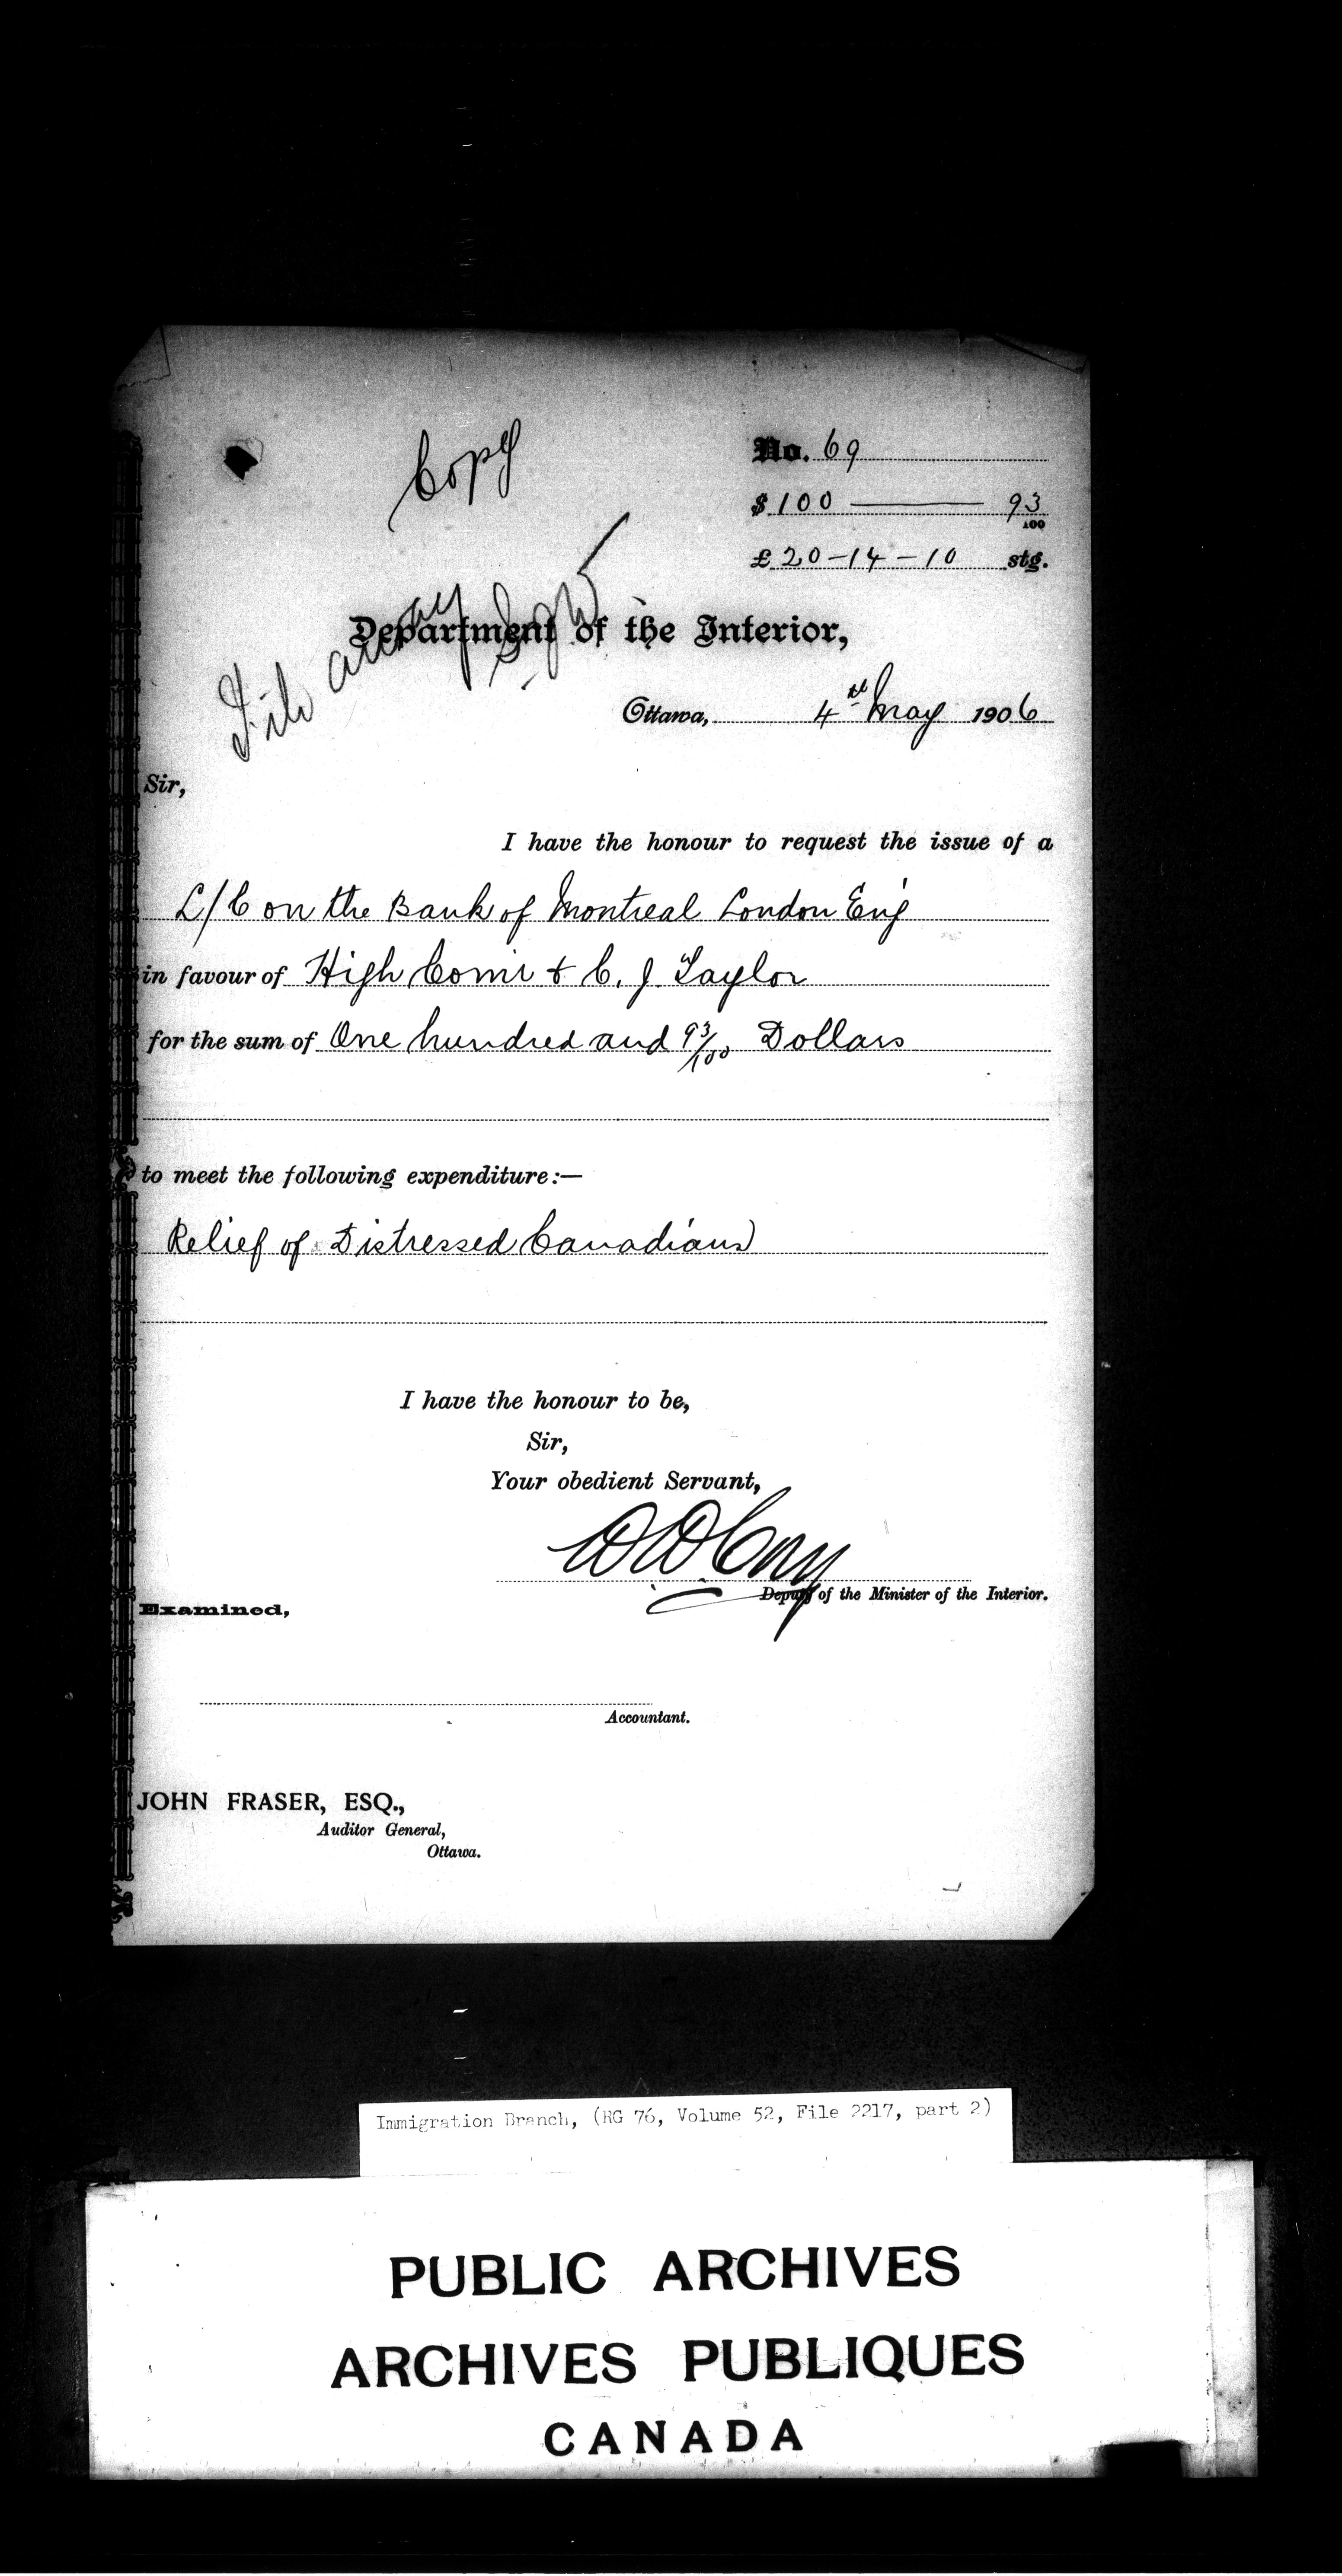 Copy
No. 69
$ 100 —— 93/100
£ 20-14-10 stg.
File away
Department of the Interior,
Ottawa, 4th May 1906
Sir,
I have the honour to request the issue of a
L/C on the Bank of Montreal London Eng
in favour of High Comr & C. J. Taylor
for the sum of One hundred and 93/100 Dollars
to meet the following expenditure:—
Relief of Distressed Canadians
I have the honour to be,
Sir,
Your obedient Servant,
W W Cory
Deputy of the Minister of the Interior.
Examined,
Accountant.
JOHN FRASER, ESQ.,
Auditor General,
Ottawa.
Immigration Branch, (RG 76, Volume 52, File 2217, part 2)
PUBLIC ARCHIVES
ARCHIVES PUBLIQUES
CANADA